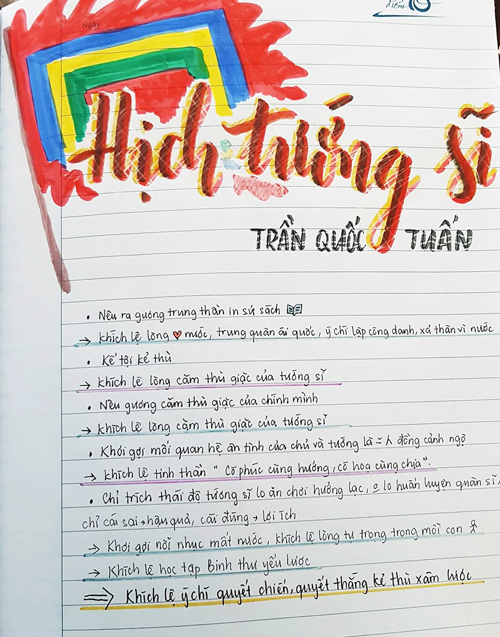 Ngày
điểm
Hịch tướng sĩ
TRẦN QUỐC TUẤN
• Nêu ra gương trung thần in sử sách
→ khích lệ lòng ♥ nước, trung quân ái quốc, ý chí lập công danh, xả thân vì nước
• Kể tội kẻ thù
→ khích lệ lòng căm thù giặc của tướng sĩ
• Nêu gương căm thù giặc của chính mình
→ khích lệ lòng căm thù giặc của tướng sĩ
• Khơi gợi mối quan hệ ân tình của chủ và tướng là đồng cảnh ngộ
→ khích lệ tinh thần " Có phúc cùng hưởng, có họa cùng chịu".
• Chỉ trích thái độ tướng sĩ lo ăn chơi hưởng lạc, lo huấn luyện quân sĩ,
chỉ cái sai → hậu quả, cái đúng → lợi ích
→ Khơi gợi nỗi nhục mất nước, khích lệ lòng tự trọng trong mỗi con
→ Khích lệ học tập Binh thư yếu lược
⇒ Khích lệ ý chí quyết chiến, quyết thắng kẻ thù xâm lược